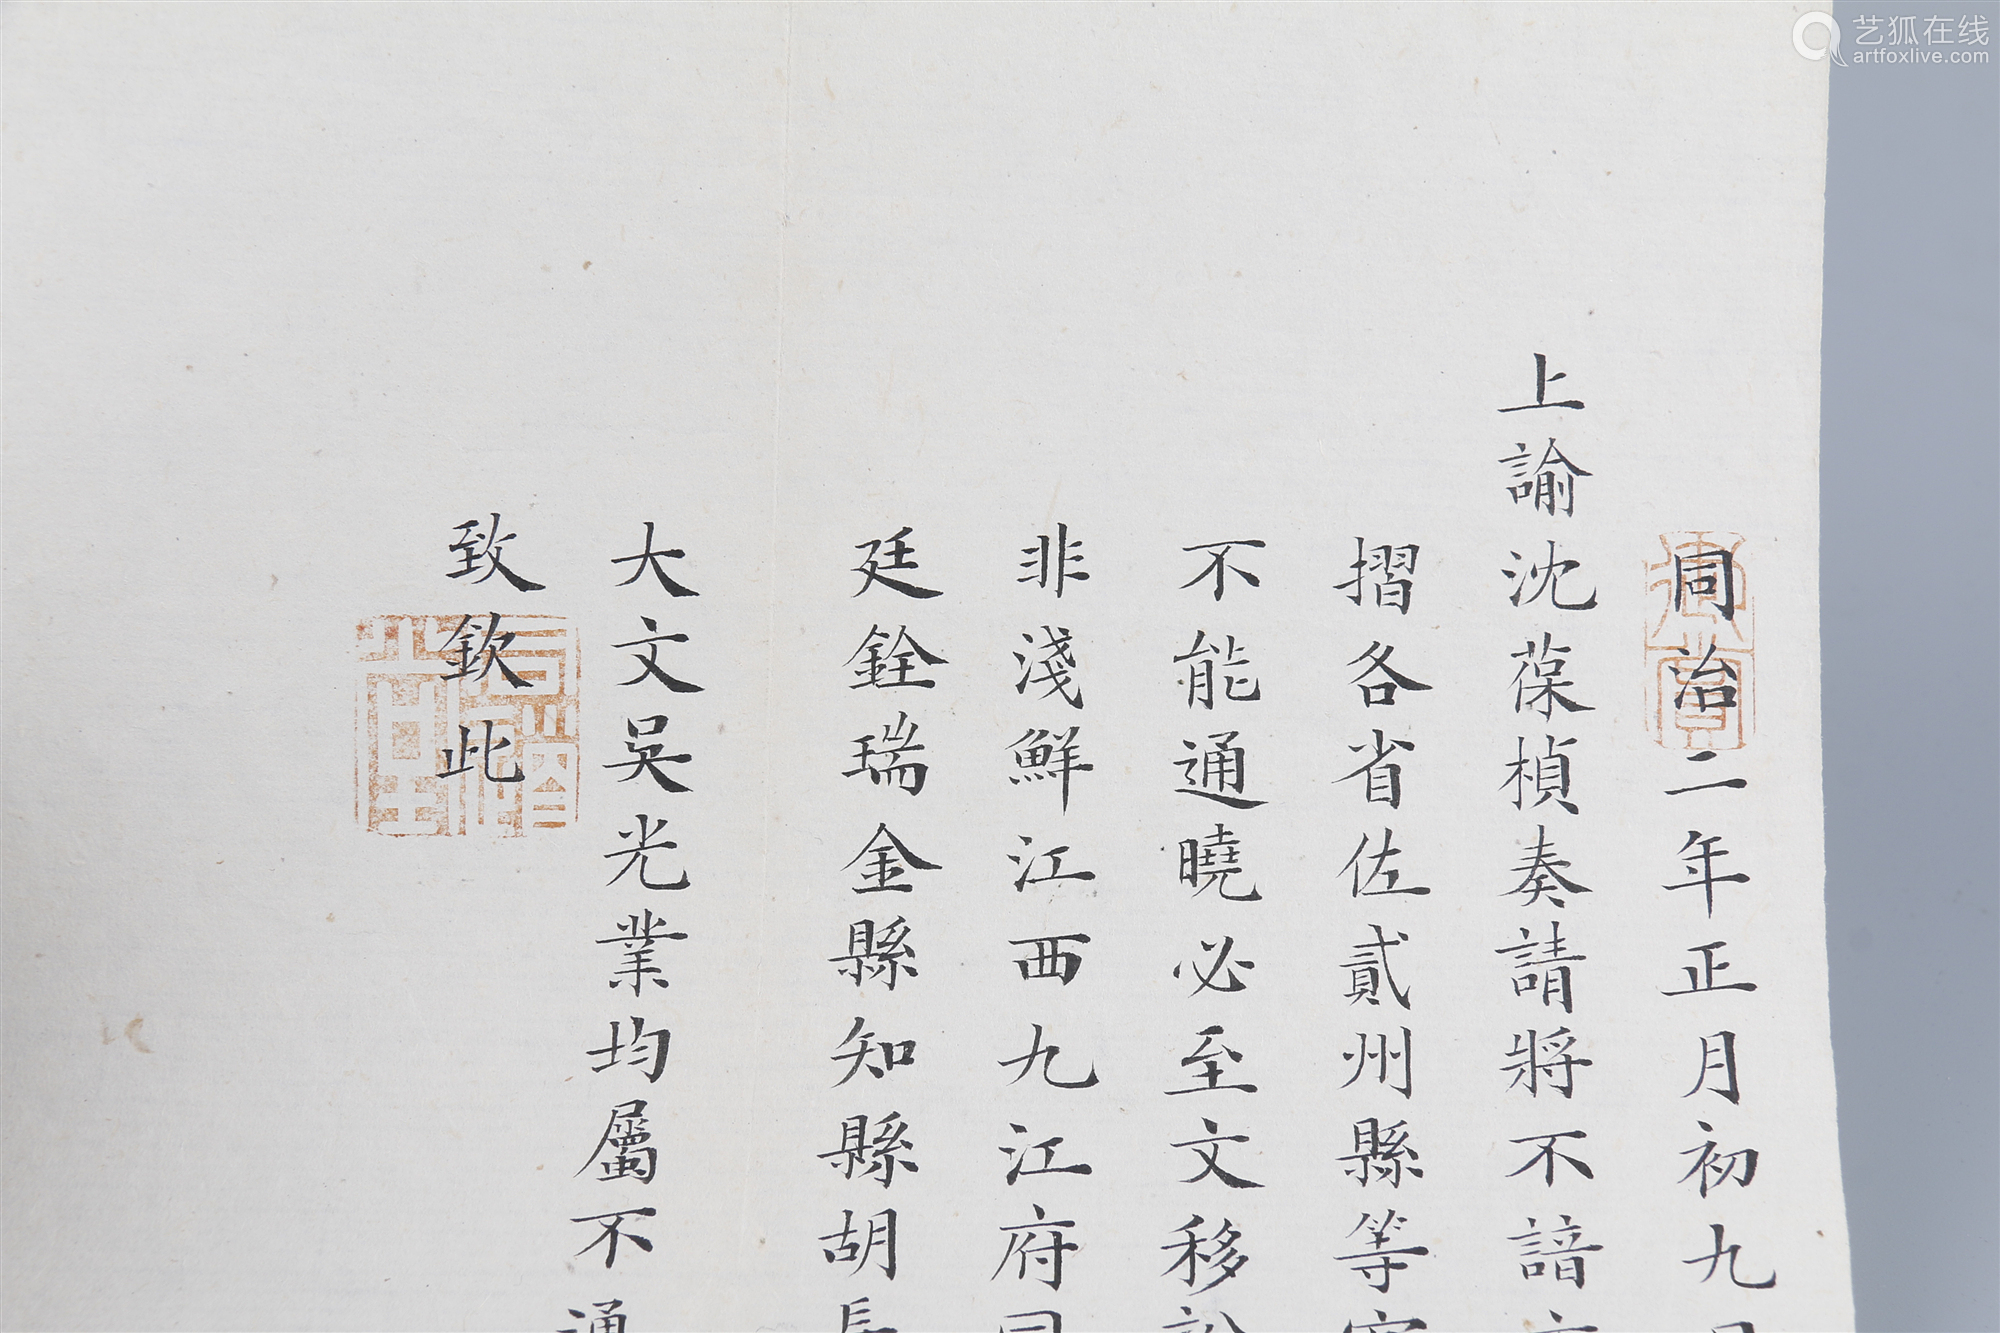 同治二年正月初九日
上諭沈葆楨奏請將不諳文
摺各省佐貳州縣等官
不能通曉必至文移訟
非淺鮮江西九江府同
廷銓瑞金縣知縣胡長
大文吳光業均屬不通
致欽此
艺狐在线
artfoxlive.com